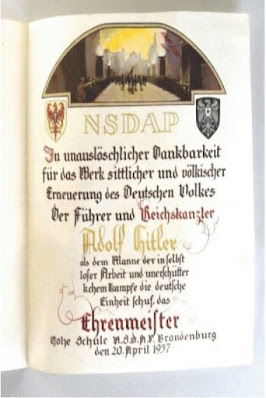 NSDAP
In unauslöschlicher Dankbarkeit
für das Werk sittlicher und völkischer
Erneuerung des Deutschen Volkes
Der Führer und Reichskanzler
Adolf Hitler
als dem Manne der in selbst
loser Arbeit und unerschütter
lichem Kampfe die deutsche
Einheit schuf, das
Ehrenmeister
Hohe Schule N.S.D.A.P. Brandenburg
den 20. April 1937